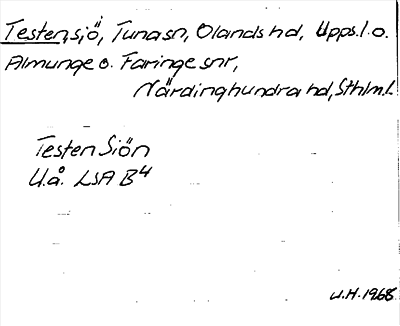 Testen, sjö, Tuna sn, Olands hd, Upps.l. o.
Almunge o. Faringe snr,
Närdinghundra hd, Sthlm.l.
Testen Siön
U.å. LSA B4
U.H. 1968